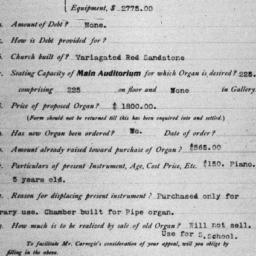 Equipment, $ 2775.00
Amount of Debt? None.
How is Debt provided for?
Church built of? Variagated Red Sandstone
Seating Capacity of Main Auditorium for which Organ is desired? 225.
comprising 225 on floor and None in Gallery
Price of proposed Organ? $ 1800.00
(Form should not be returned till this has been enquired into and settled.)
Has new Organ been ordered? No. Date of order?
Amount already raised toward purchase of Organ? $565.00
Particulars of present Instrument, Age, Cost Price, Etc. $150. Piano.
5 years old.
Reason for displacing present instrument? Purchased only for
rary use. Chamber built for Pipe organ.
How much is to be realised by sale of old Organ? Will not sell.
Use for S.School.
To facilitate Mr. Carnegie's consideration of your appeal, will you oblige by
filling in the above.